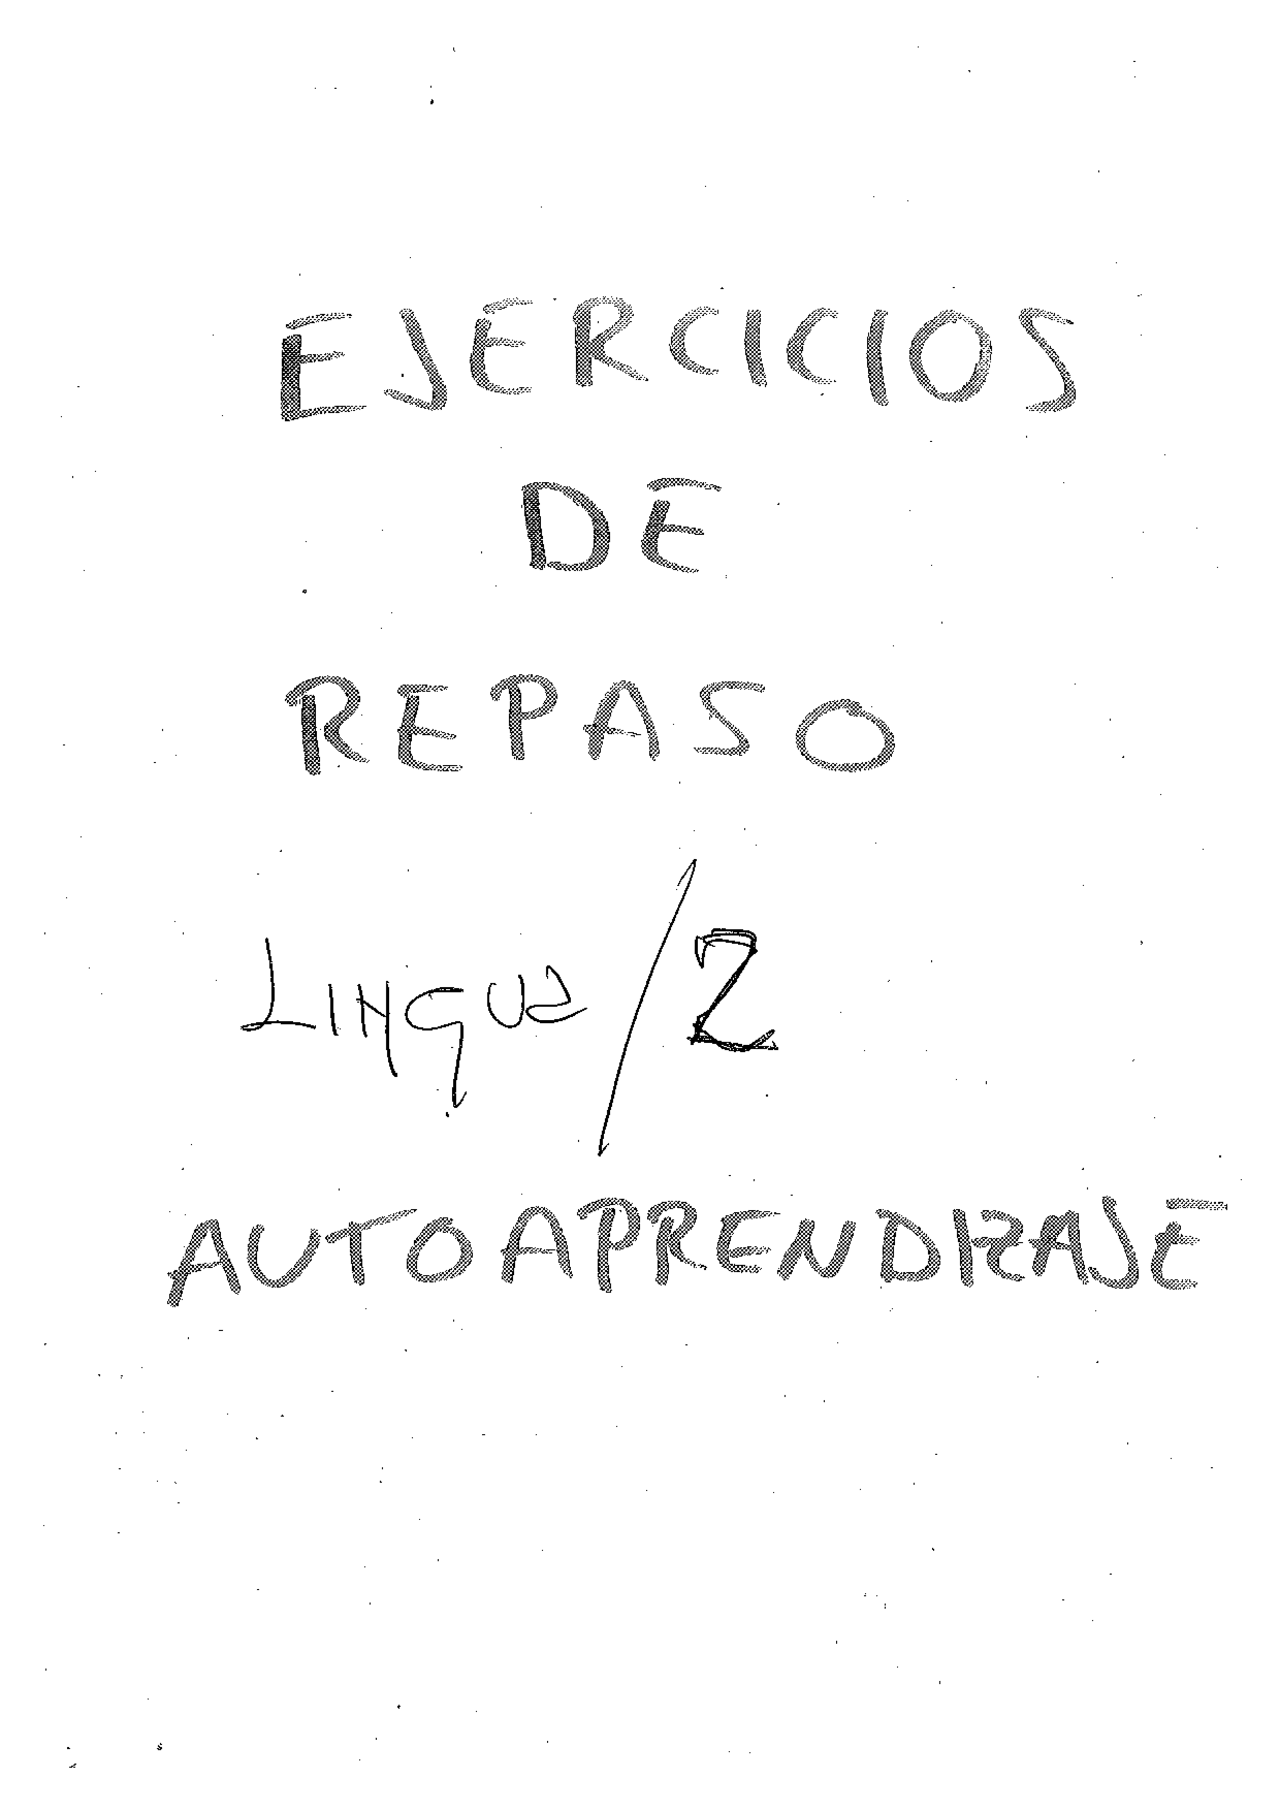 EJERCICIOS
DE
REPASO
LINGUA/2
AUTOAPRENDIZAJE